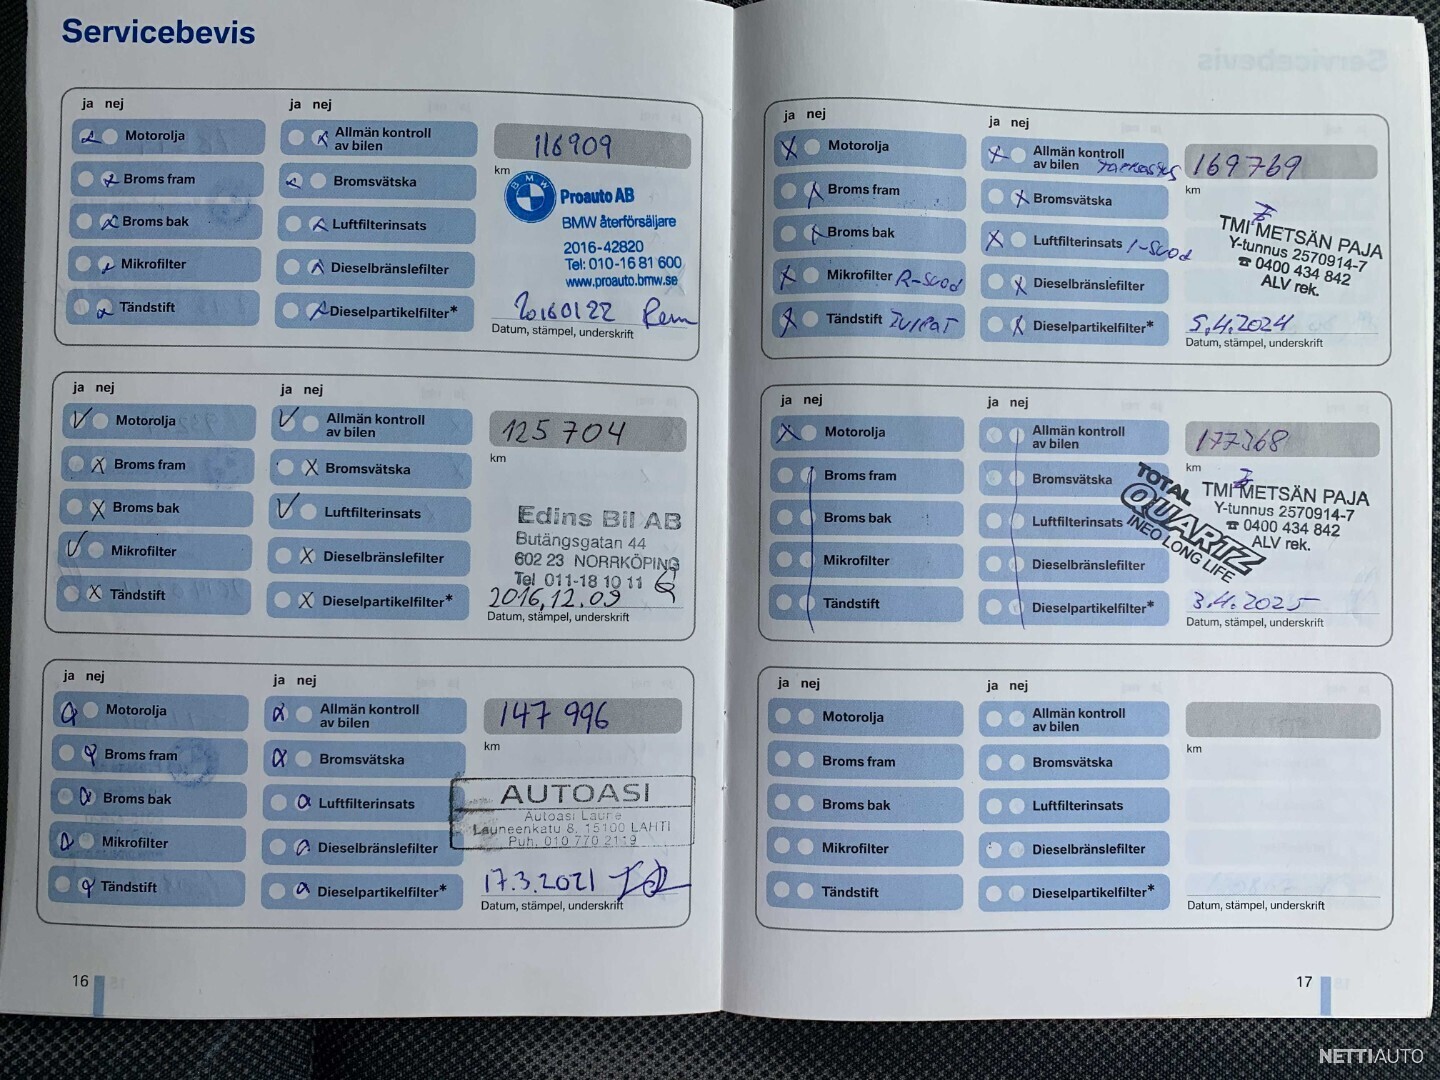 Servicebevis
ja nej
ja nej
Motorolja
Broms fram
Broms bak
Mikrofilter
Tändstift
Allmän kontroll
av bilen
Bromsvätska
Luftfilterinsats
Dieselbränslefilter
Dieselpartikelfilter*
116909
km
BMW
Proauto AB
BMW återförsäljare
2016-42820
Tel: 010-16 81 600
www.proauto.bmw.se
20160122
Datum, stämpel, underskrift
ja nej
ja nej
Motorolja
Broms fram
Broms bak
Mikrofilter
Tändstift
Allmän kontroll
av bilen
Bromsvätska
Luftfilterinsats
Dieselbränslefilter
Dieselpartikelfilter*
125 704
km
Edins Bil AB
Butängsgatan 44
602 23 NORRKÖPING
Tel 011-18 10 11
2016.12.09
Datum, stämpel, underskrift
ja nej
ja nej
Motorolja
Broms fram
Broms bak
Mikrofilter
Tändstift
Allmän kontroll
av bilen
Bromsvätska
Luftfilterinsats
Dieselbränslefilter
Dieselpartikelfilter*
147 996
km
AUTOASI
Autoasi Laune
Launeenkatu 8, 15100 LAHTI
Puh. 010 770 2119
17.3.2021
Datum, stämpel, underskrift
16
ja nej
ja nej
Motorolja
Broms fram
Broms bak
Mikrofilter R-suod
Tändstift TULPAT
Allmän kontroll
av bilen
Bromsvätska
Luftfilterinsats I-suod
Dieselbränslefilter
Dieselpartikelfilter*
169769
km
TMI METSÄN PAJA
Y-tunnus 2570914-7
☎ 0400 434 842
ALV rek.
5.4.2024
Datum, stämpel, underskrift
ja nej
ja nej
Motorolja
Broms fram
Broms bak
Mikrofilter
Tändstift
Allmän kontroll
av bilen
Bromsvätska
Luftfilterinsats
Dieselbränslefilter
Dieselpartikelfilter*
177368
km
TOTAL
QUARTZ
INEO LONG LIFE
TMI METSÄN PAJA
Y-tunnus 2570914-7
☎ 0400 434 842
ALV rek.
3.4.2025
Datum, stämpel, underskrift
ja nej
ja nej
Motorolja
Broms fram
Broms bak
Mikrofilter
Tändstift
Allmän kontroll
av bilen
Bromsvätska
Luftfilterinsats
Dieselbränslefilter
Dieselpartikelfilter*
km
Datum, stämpel, underskrift
17
NETTIAUTO